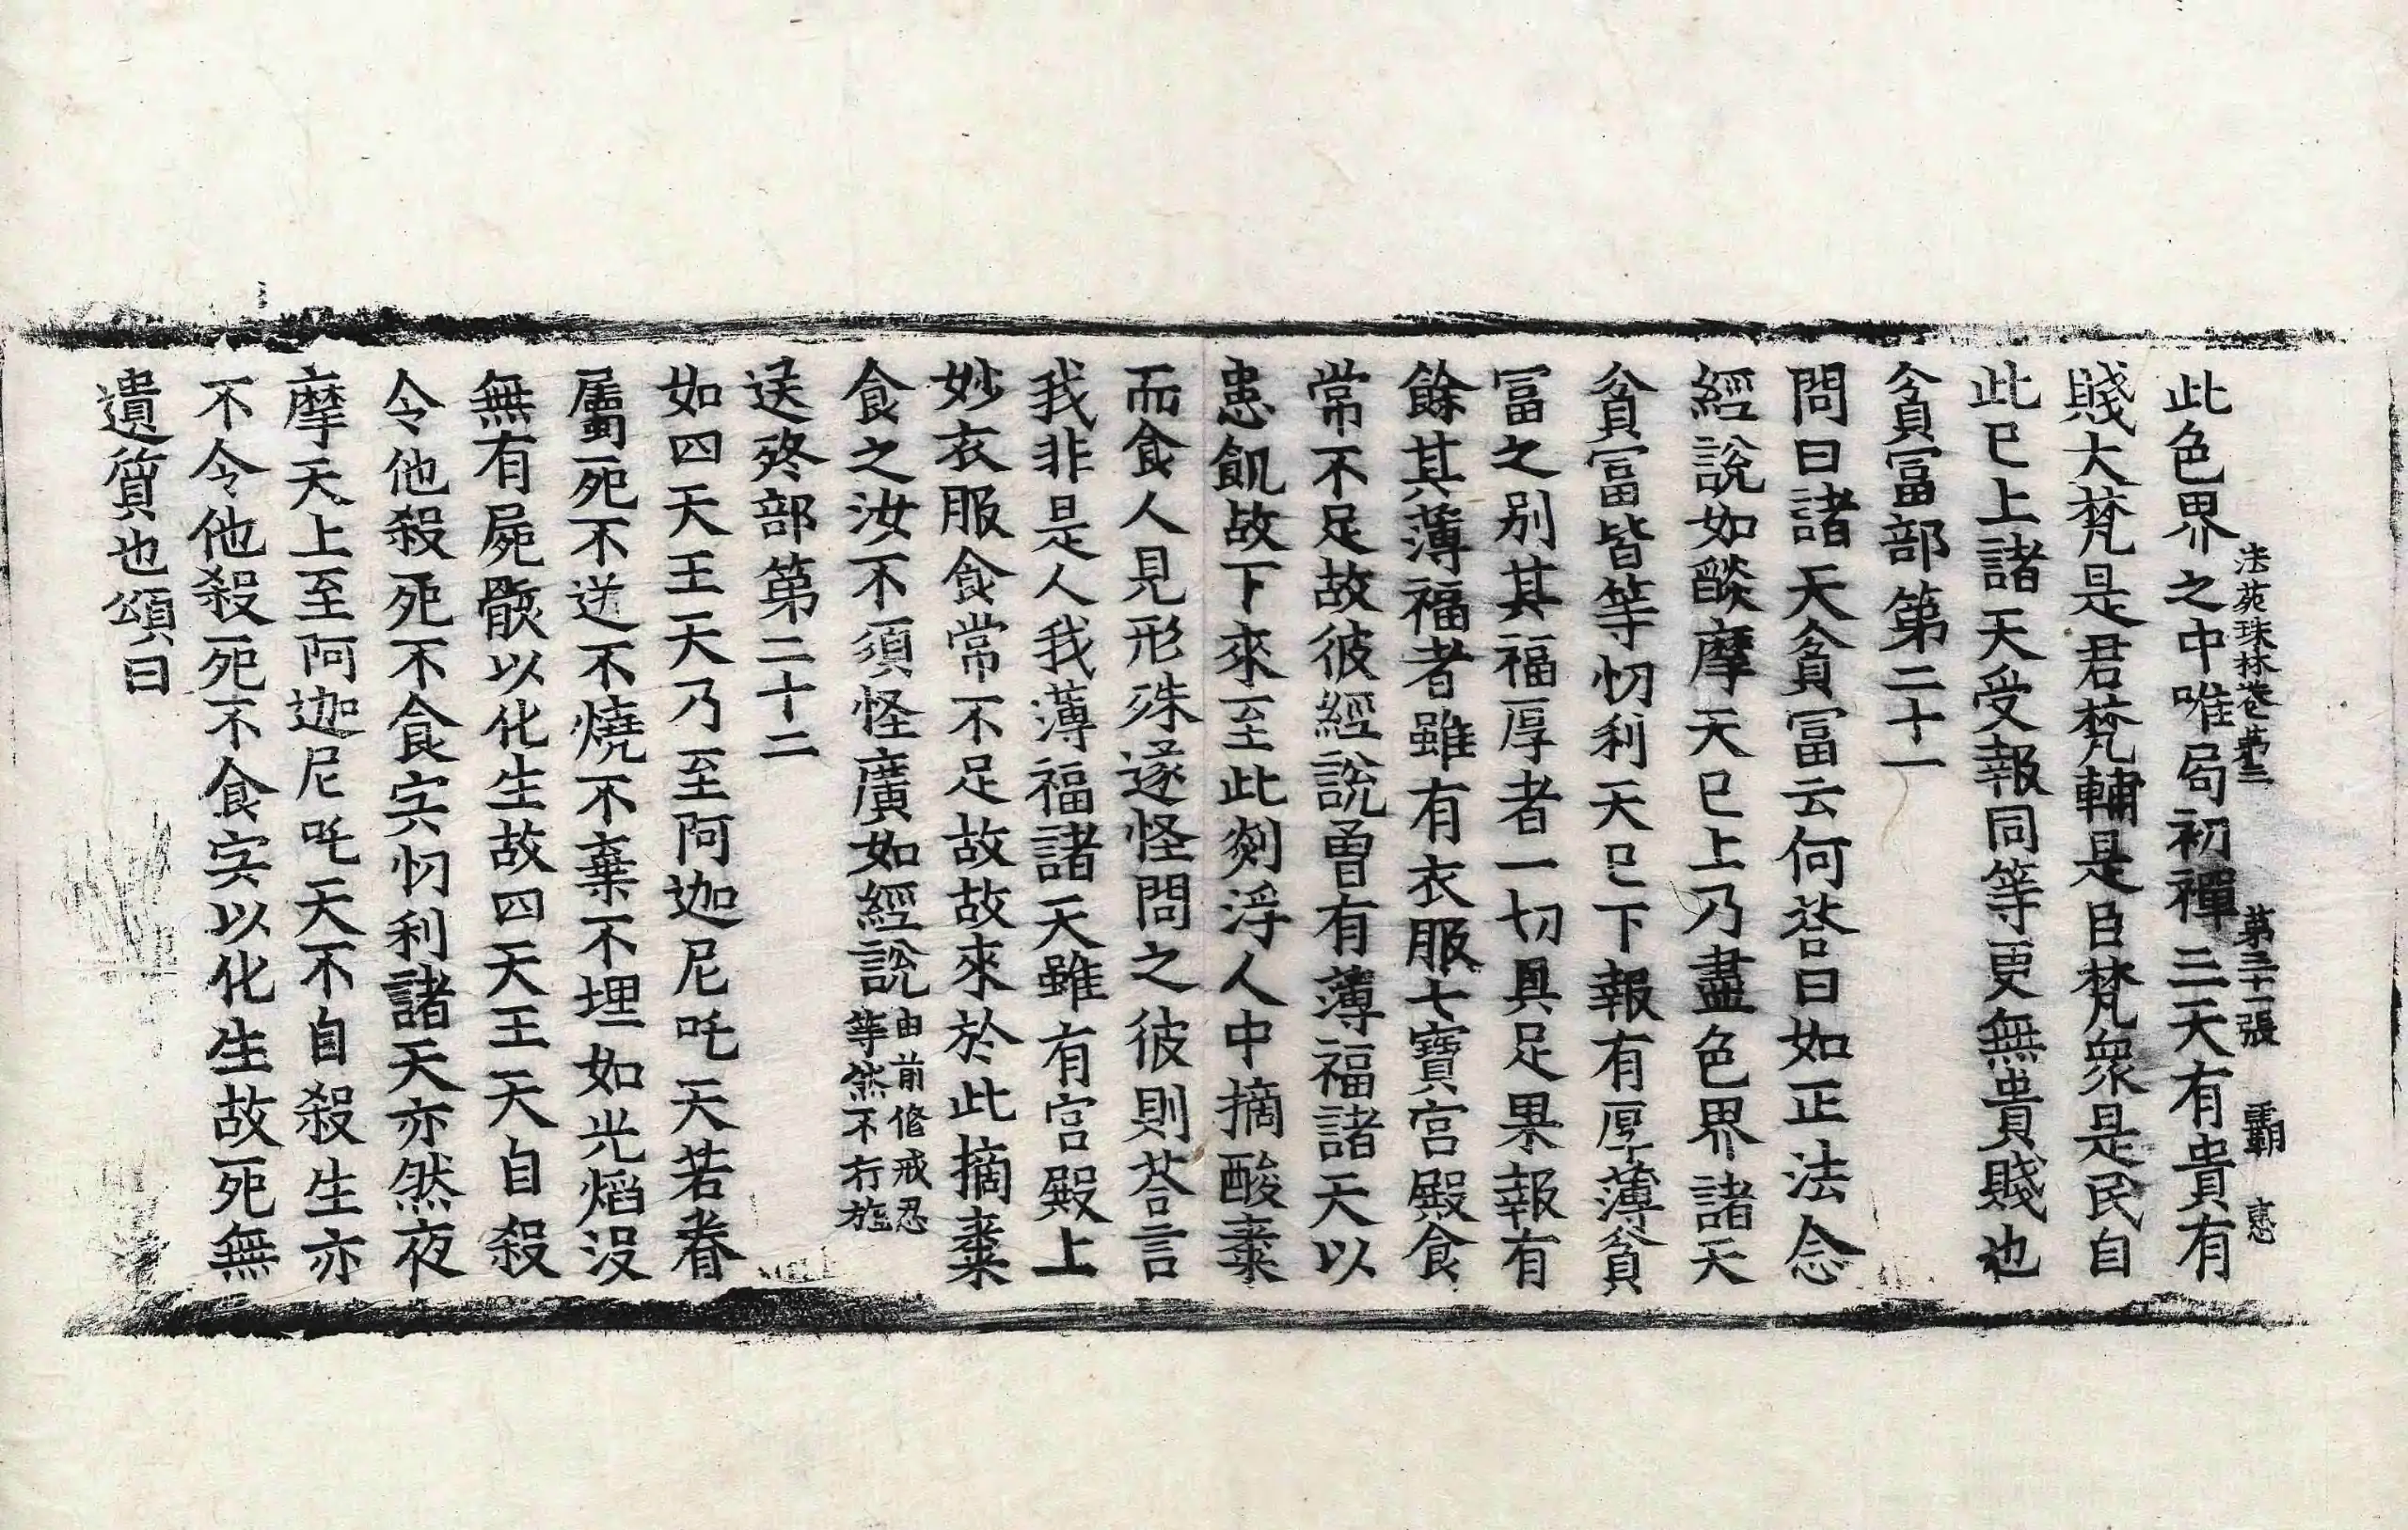 法苑珠林卷苐三　苐三十一張　覇　恵
此色界之中唯局初禪三天有貴有
賤大梵是君梵輔是臣梵衆是民自
此已上諸天受報同等更無貴賤也
貧冨部第二十一
問曰諸天貧冨云何荅曰如正法念
經說如燄摩天已上乃盡色界諸天
貧冨皆等忉利天已下報有厚薄貧
冨之別其福厚者一切具足果報有
餘其薄福者雖有衣服七寶宫殿食
常不足故彼經說曽有薄福諸天以
患飢故下來至此剡浮人中摘酸棗
而食人見形殊遂怪問之彼則荅言
我非是人我薄福諸天雖有宫殿上
妙衣服食常不足故故來於此摘棗
食之汝不須怪廣如經說由前修戒忍等然不行施
送終部第二十二
如四天王天乃至阿迦尼吒天若眷
屬死不送不燒不棄不埋如光焰没
無有屍骸以化生故四天王天自殺
令他殺死不食宍忉利諸天亦然夜
摩天上至阿迦尼吒天不自殺生亦
不令他殺死不食宍以化生故死無
遺質也頌曰